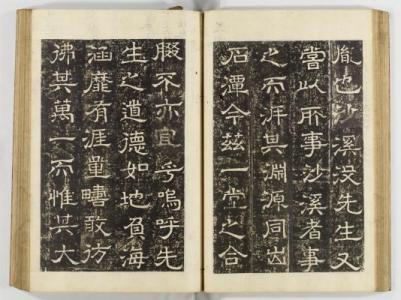 胤也沙溪沒先生又
嘗以所事沙溪者事
之而泝其淵源同出
石潭今茲一堂之合
腏不亦宜乎嗚呼先
生之道德如地負海
涵靡有涯量疇敢彷
彿其萬一而惟其大